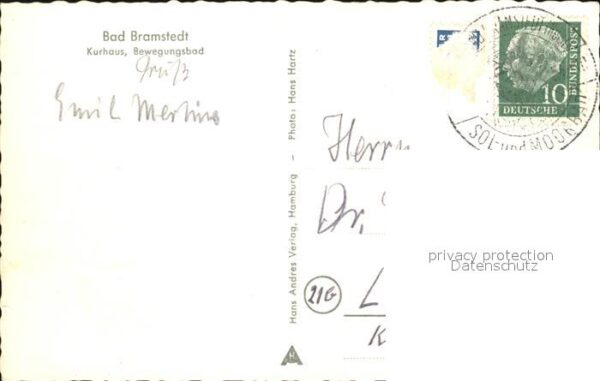 Bad Bramstedt
Kurhaus, Bewegungsbad
Gruß
Emil Mertins
Hans Andres Verlag, Hamburg - Photo: Hans Hartz
R
10
DEUTSCHE
BUNDESPOST
SOL- und MOORBAD
Herrn
Dr.
21G
L
K
privacy protection
Datenschutz